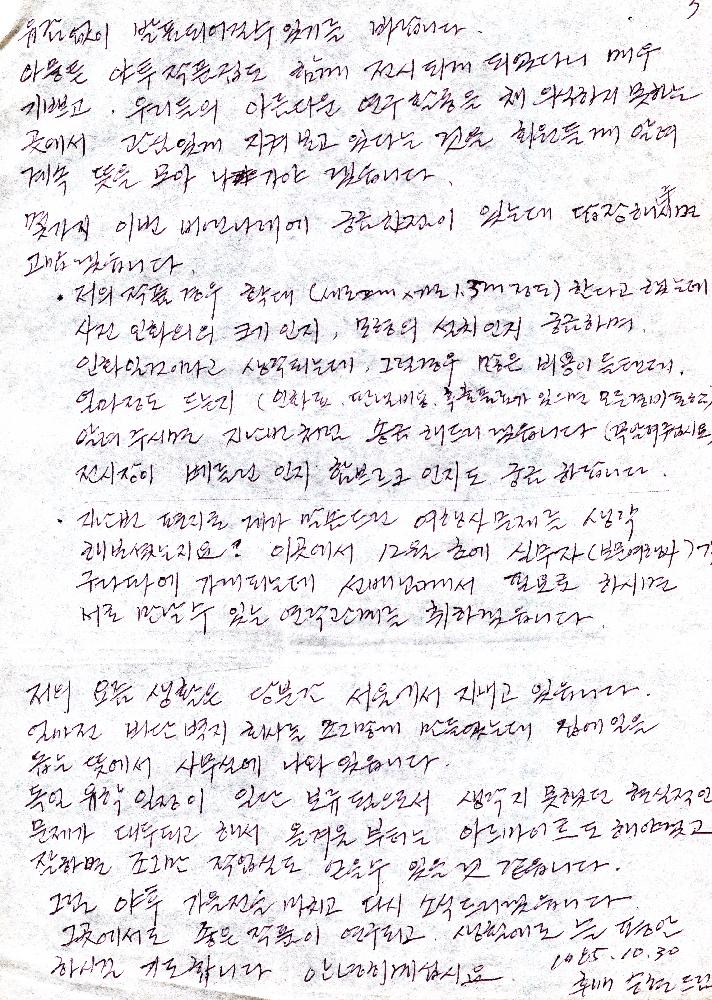 3
유감없이 발표되어질수 있기를 바랍니다.
아울러 야투 작품전도 함께 전시되게 되었다니 매우
기쁘고. 우리들의 아름다운 연구활동을 채 의식하지 못하는
곳에서 관심있게 지켜보고 있다는 것을 회원들께 알려
계속 뜻을 모아 나가야 겠습니다.
몇가지 이번 비엔나레에 궁금한점이 있는데 답장해주시면
고맙겠습니다.
· 저의 작품경우 확대 (세로 x 1.5m 정도) 한다고 했는데
사진 인화의 크기인지, 모형의 설치인지 궁금하며.
인화일것이라고 생각되는데, 그런경우 많은 비용이 들텐데.
얼마정도 드는지 (인화료. 판넬비용. 있으면 모든경비 포함)
알려 주시면 지난번처럼 송금 해드리겠습니다 (꼭알려주십시요)
전시장이 베를린 인지 함부르크 인지도 궁금 하답니다.
· 지난번 편지로 제가 말씀드린 여행사 문제를 생각
해보셨는지요? 이곳에서 12월 초에 실무자 (보문여행사)가
가게되는데 선배님께서 필요로 하시면
서로 만날수 있는 연락관계를 취하겠습니다.
저의 요즘 생활은 당분간 서울에서 지내고 있습니다.
얼마전 바란벽지 회사를 조그맣게 만들었는데 집에일을
돕는 뜻에서 사무실에 나와 있습니다.
독일 유학 일정이 일단 보류됨으로서 생각지 못했던 현실적인
문제가 대두되고 해서 올겨울 부터는 아르바이트도 해야겠고
잘하면 조그만 작업실도 얻을수 있을것 같습니다.
그럼 야투 가을전을 마치고 다시 소식드리겠습니다.
그곳에서도 좋은 작품이 연구되고. 생활에도 늘 평안
하시길 기도합니다 안녕히계십시요.
1985.10.30
후배 드림